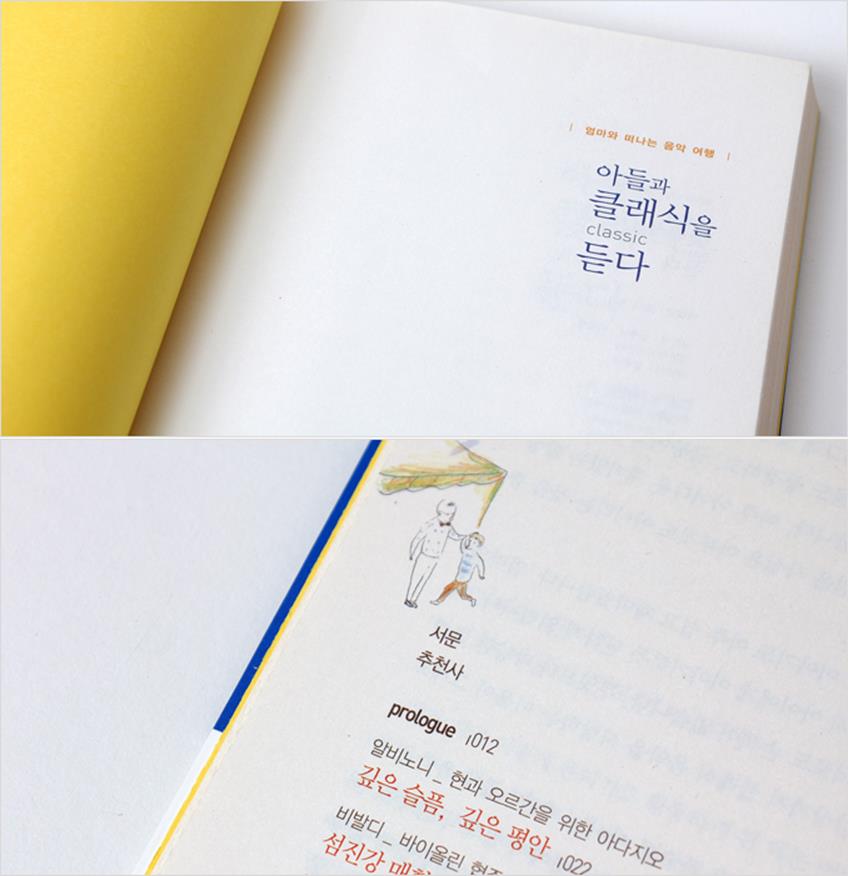 | 엄마와 떠나는 음악 여행 |
아들과
클래식을
classic
듣다
서문
추천사
prologue ı012
알비노니_ 현과 오르간을 위한 아다지오
깊은 슬픔, 깊은 평안 ı022
비발디_ 바이올린
섬진강